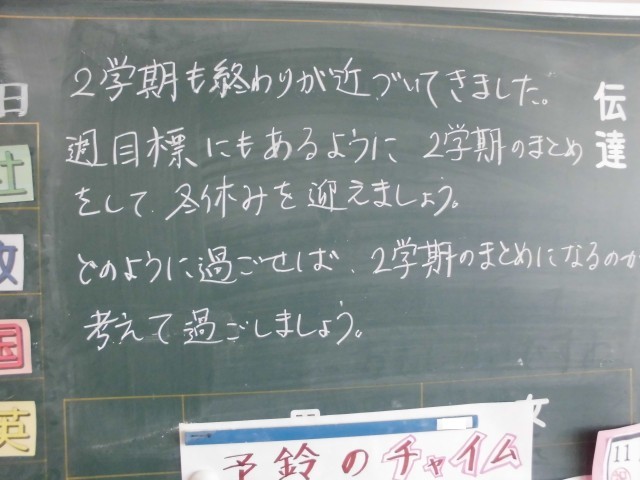 伝達
2学期も終わりが近づいてきました。
週目標にもあるように 2学期のまとめ
をして、冬休みを迎えましょう。
どのように過ごせば、2学期のまとめになるのか
考えて過ごしましょう。
日
社
数
国
英
女
予鈴のチャイム
11